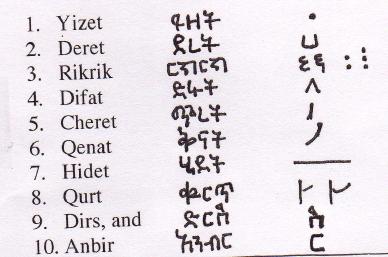 1. Yizet ይዘት •
2. Deret ደረት
3. Rikrik ርክርክ
4. Difat ድፋት
5. Cheret ጭረት
6. Qenat ቅናት
7. Hidet ሂደት
8. Qurt ቁርጥ
9. Dirs, and ድርስ ስ
10. Anbir አንብር ር